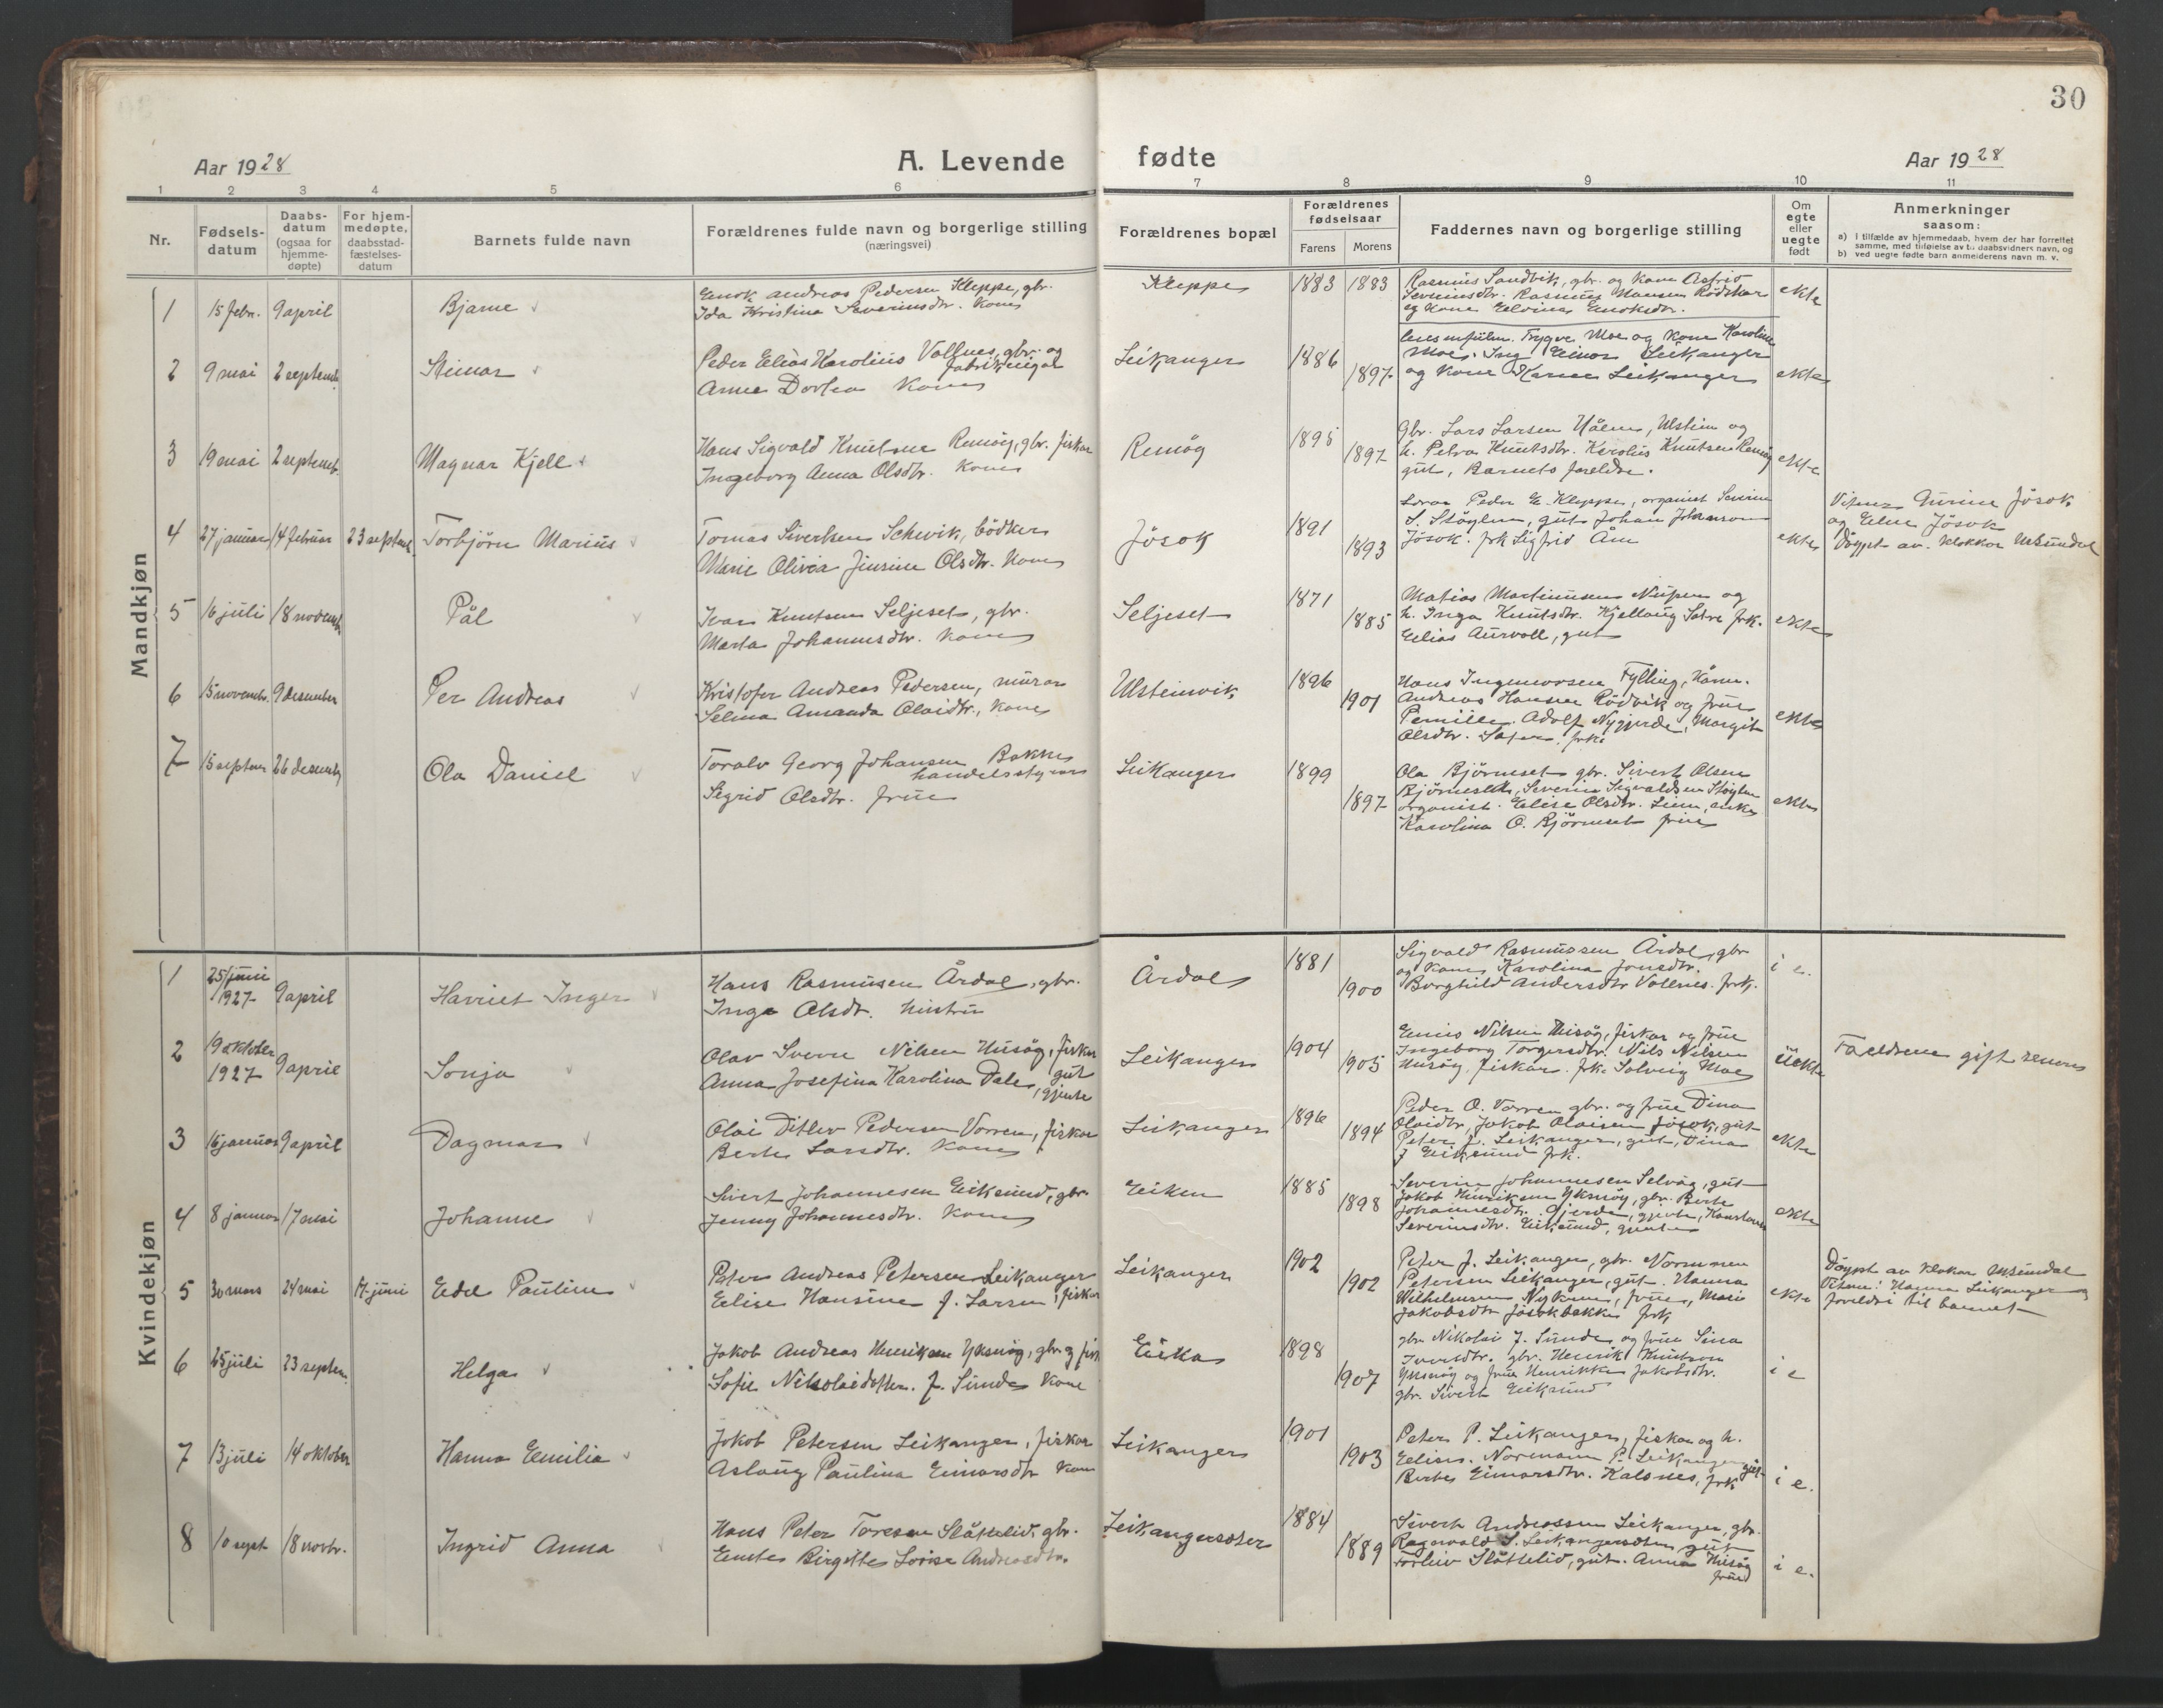 30
Aar 1928
A. Levende
fødte
Aar 1928
1 2 3 4 5 6 7 8 9 10 11
Nr.
Fødsels-
datum
Daabs-
datum
(ogsaa for
hjemme-
døpte)
For hjem-
medøpte,
daabsstad-
fæstelses-
datum
Barnets fulde navn
Forældrenes fulde navn og borgerlige stilling
(næringsvei)
Forældrenes bopæl
Forældrenes
fødselsaar
Farens Morens
Faddernes navn og borgerlige stilling
Om
egte
eller
uegte
født
Anmerkninger
saasom:
a) i tilfælde av hjemmedaab, hvem der har forrettet
samme, med tilføielse av to daabsvidners navn, og
b) ved uegte fødte barn anmelderens navn m. v.
Mandkjøn
1 15 febr. 9 april Bjarne
Enok Andreas Pedersen Kleppe, gbr.
Ida Kristina Severinsdtr. kone
Kleppe 1883 1883
Rasmus Sandvik, gbr. og kone Astrid
Severinsdtr. Rasmus Hansen Rødskar
og kone Elvina Enoksdtr.
ekte
2 9 mai 2 septemb. Steinar
Peder Elias Karolius Vallnes, gbr. og
fabrikkeigar
Anne Dortea kone
Leikanger 1886 1897
Trygve Moe og kone Karoline
Moe. Ing. Einar Leikanger
og kone Karen Leikanger
ekte
3 19 mai 2 septemb. Magnar Kjell
Hans Sigvald Knutsen Remøy, gbr. fiskar
Ingeborg Anna Olsdtr. kone
Remøy 1895 1897
Gbr. Lars Larsen Håen, Ulstein og
h. Petra Knutsdtr. Karolius Knutsen Remøy
gut, Barnets foreldre.
ekte
4 27 januar 14 februar 23 septemb. Torbjørn Marius
Tomas Sivertsen Schevik, bødker
Marie Olivia Jensine Olsdtr. kone
Jøsok 1891 1893
Peder E. Kleppe, organist Severin
S. Støylen, gut Johan Johanson
Jøsok. frk Sigfrid Åm
ekte
Vitner Gurine Jøsok
og Eline Jøsok
Døypt av klokkar Urkundal
5 16 juli 18 novemb. Pål
Ivar Knutsen Seljeset, gbr.
Marta Johannesdtr. kone
Seljeset 1871 1885
Matias Martinusen Nupen og
h. Inga Knutsdtr. Kjellaug Sætre frk.
Elias Aurvoll, gut
ekte
6 15 novemb. 9 desember Per Andreas
Kristofer Andreas Pedersen, murar
Selma Amanda Olaidtr., kone
Ulsteinvik 1896 1901
Hans Ingemorsen Fylling, Hånn.
Andreas Hansen Rødvik og frue
Pernille. Adolf Nygjerde, Margit
Olsdtr. frk.
ekte
7 15 septem 26 desemb. Ola Daniel
Toralv Georg Johansen Bakke
handelsstyrar
Sigrid Olsdtr. frue
Leikanger 1899 1897
Ola Bjørneset gbr. Sivert Olsen
Bjørneset, Severin Sigvaldsen Støylen
organist. Elise Olsdtr. Liem, enke
Karolina O. Bjørneset frue
ekte
Kvindekjøn
1 25/juni
1927 9 april Harriet Inger
Hans Rasmusen Årdal, gbr.
Inga Olsdt. hustru
Årdal 1881 1900
Sigvald Rasmussen Årdal, gbr
og kone Karolina Jonsdtr.
Borghild Andersdtr Vallnes. frk.
i e.
2 19 oktober
1927 9 april Sonja
Olav Sverre Nilsen Husøy, fiskar
gut
Anna Josefina Karolina Dale, gjente
Leikanger 1904 1905
Enus Nilsen Husøy, fiskar og frue
Ingeborg Torgersdtr. Nils Nilsen
Husøy, fiskar. frk. Solveig Moe
Uekte
Foreldrene gift senere
3 16 januar 9 april Dagmar
Olai Ditlev Pedersen Vorren, fiskar
Berte Larsdtr. kone
Leikanger 1896 1894
Peder O. Vorren gbr. og frue Dina
Olaidtr, Jakob Olaisen Jøsok, gut
Peter J. Leikanger, gut, Dina
J Eiksund frk.
ekte
4 8 januar 17 mai Johanne
Sivert Johannesen Eiksund, gbr.
Jenny Johannesdtr. kone
Eiken 1885 1898
Severin Johannesen Selvåg, gut
Jakob Henriksen Yksnøy, gbr. Berte
Johannesdtr. Gjerde, gjente, Konstanse
Severinsdtr. Eiksund, gjente
ekte
5 30 mars 24 mai 17 juni Edel Pauline
Peter Andreas Petersen Leikanger
fiskar
Elise Hansine f. Larsen
Leikanger 1902 1902
Peter J. Leikanger, gbr. Normann
Petersen Leikanger, gut. Hanna
Wilhelmsen Nykrem, frue, Marie
Jakobsdtr Jøsokbakke frk
ekte
Døypt av klokar Urkundal
Vitne: Hanna Leikanger og
foreldri til barnet
6 25 juli 23 septem. Helga
Jakob Andreas Henriksen Yksnøy, gbr og fisk
Sofie Nikolaidotter. f. Sunde kone
Eika 1898 1907
gbr. Nikolai J. Sunde og frue Sina
Iversdtr. gbr. Henrik Knutson
Yksnøy og frue Henrikke Jakobsdtr.
gbr. Sivert Eiksund
i e
7 13 juli 14 oktober Hanna Emilia
Jakob Petersen Leikanger, fiskar
Aslaug Paulina Einarsdtr kone
Leikanger 1901 1903
Peter P. Leikanger, fiskar og h.
Elise. Normann P. Leikanger gut
Berte Einarsdtr. Kalsnes, frk
i e.
8 10 sept 18 novbr. Ingrid Anna
Hans Peter Toresen Slåttelid, gbr.
Emte Birgitte Lovise Andreasdtr.
Leikangersæter 1884 1889
Sivert Andreassen Leikanger, gbr.
Ragnvald S. Leikangersæter, gut
Torleiv Slåttelid, gut. Anna Husøy
frue
i e.